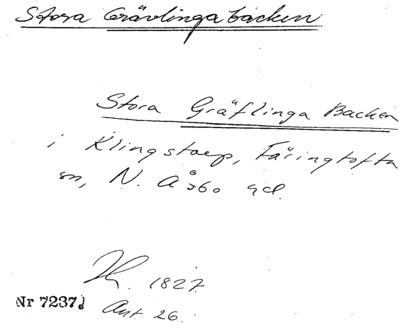 Stora Grävlingabacken
Stora Gräflinga Backen
i Klingstorp, Färingtofta
sn, N. Åsbo hd.
1827
Nr 7237
Akt 26